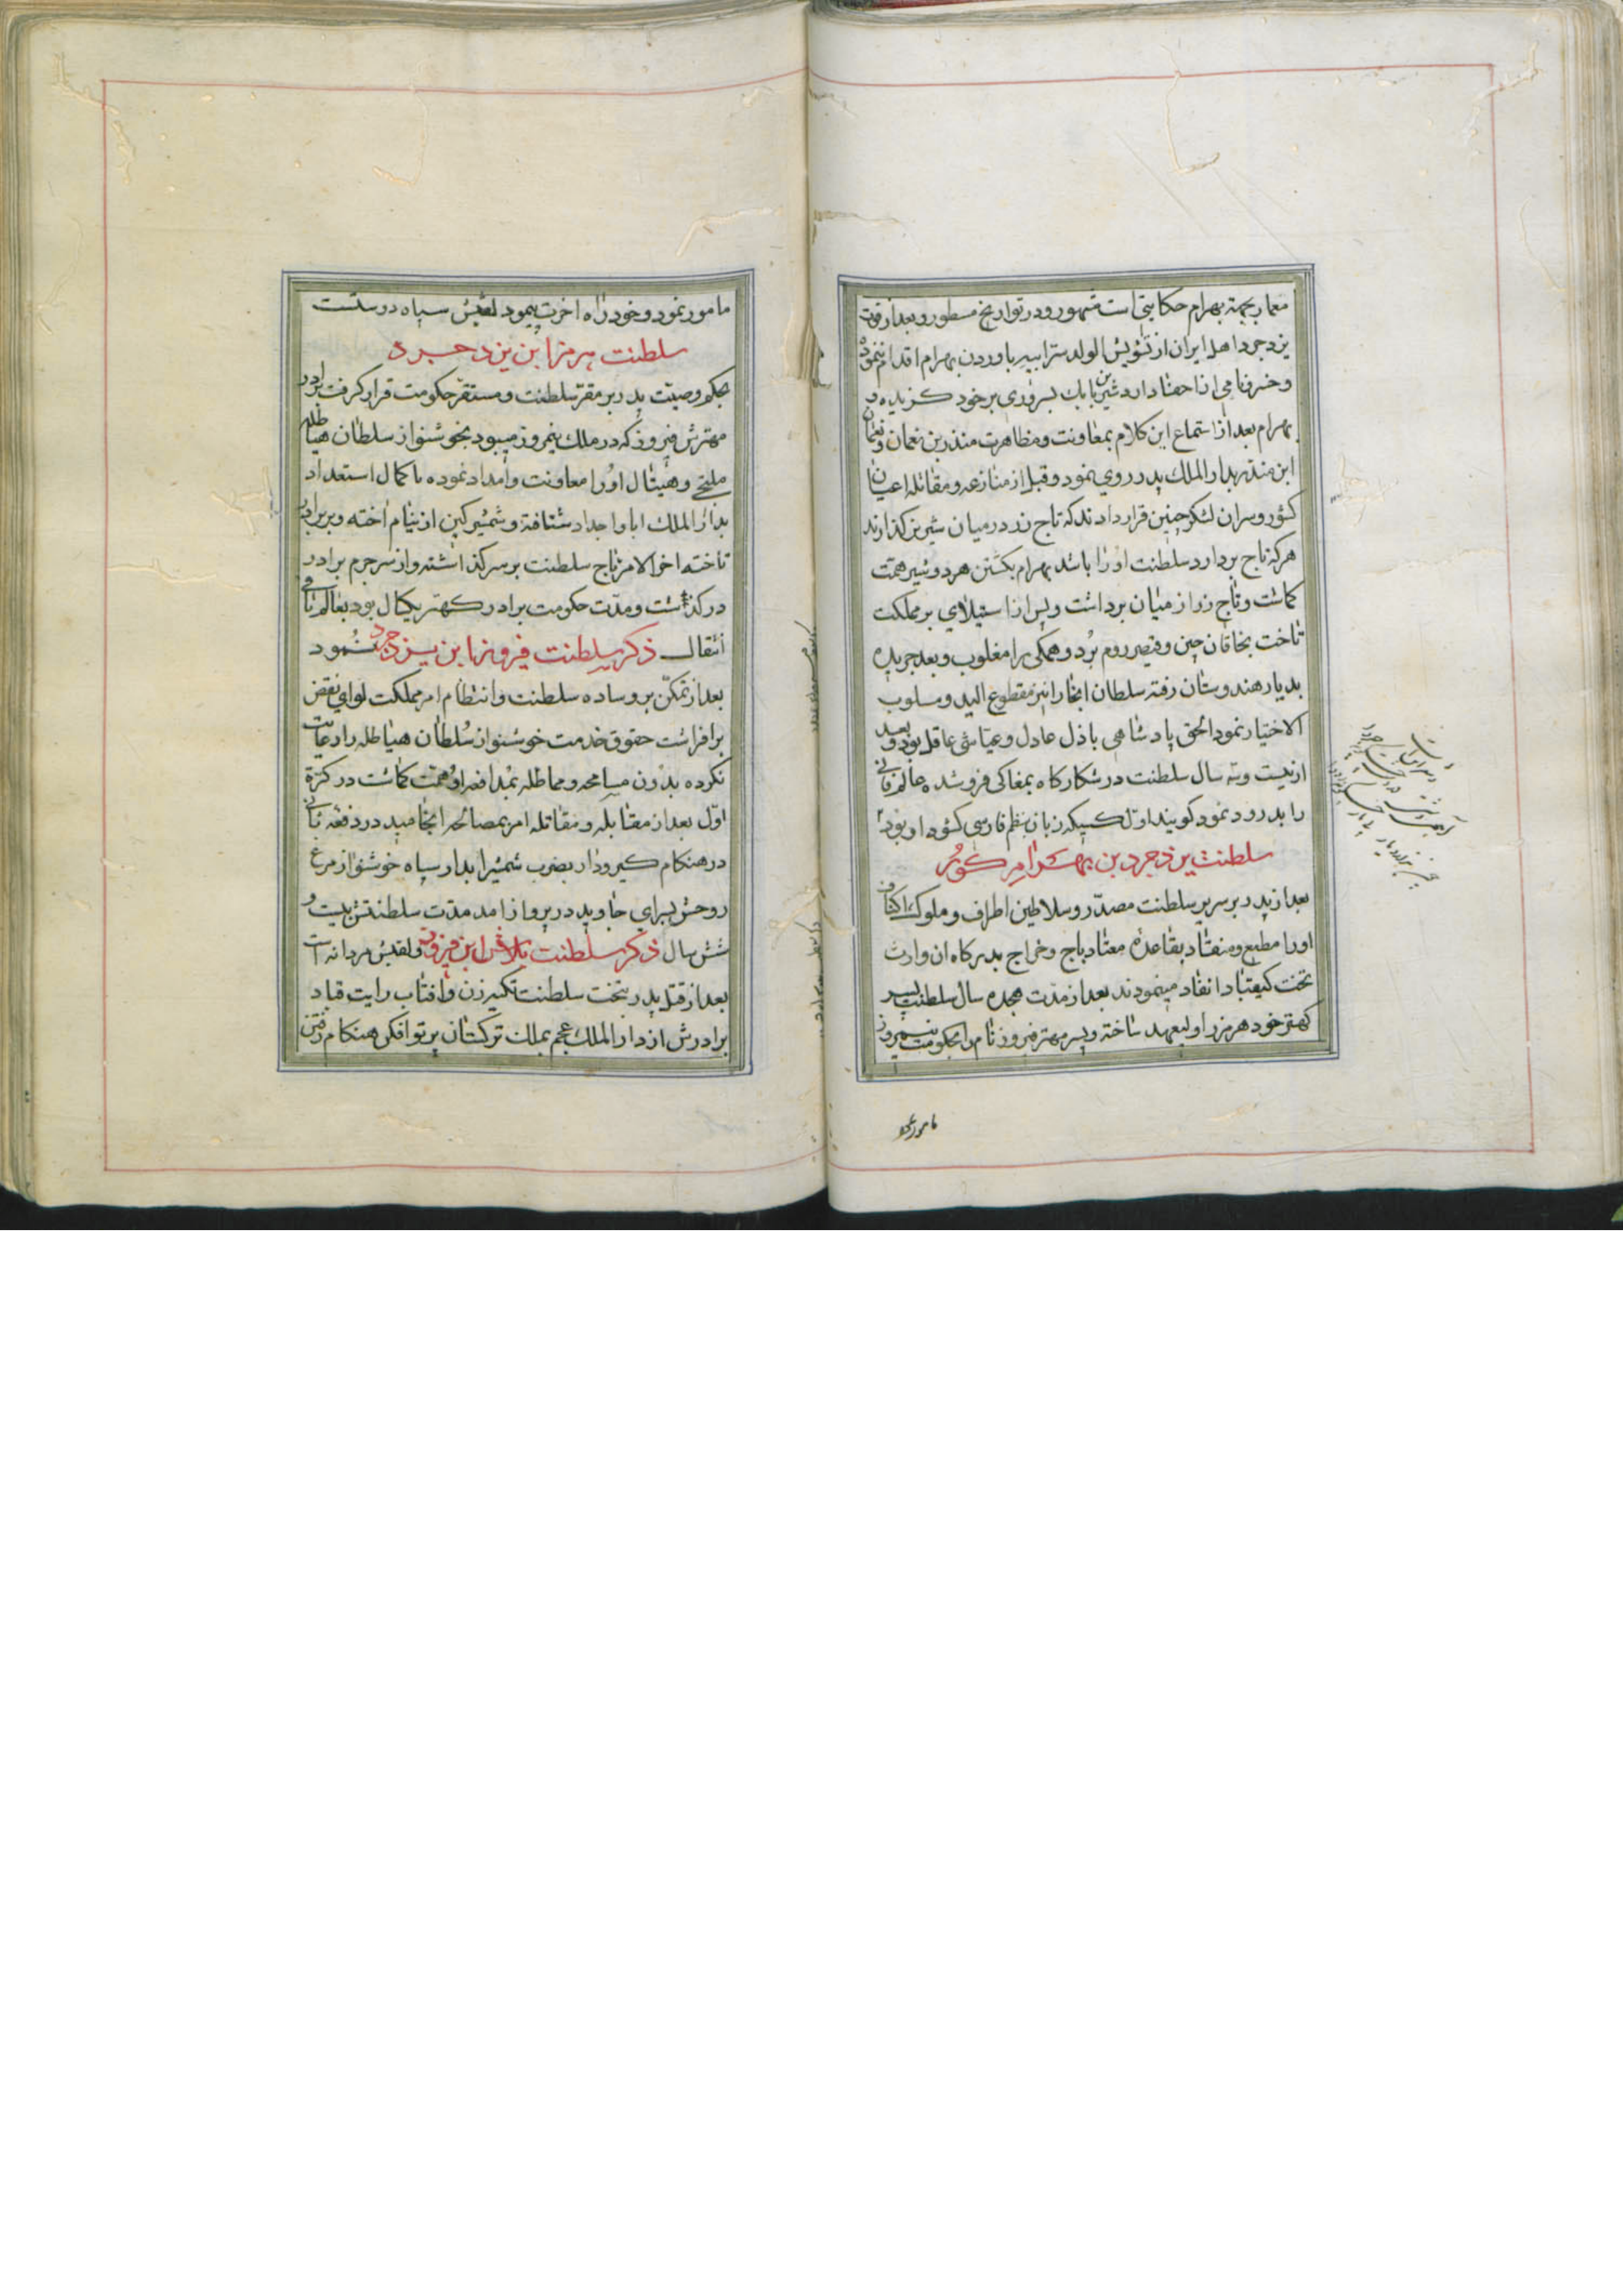 معمار بجهة بهرام حکایتی است مشهور و در تواریخ مسطور و بعد از فوت
یزدجرد اهل ایران از تشویش الولد سر ابیه باوردن بهرام اقدام ننموده
و خسرو نامی از احفاد اردشیر بن بابک بسروری بر خود کزیده و
بهرام بعد از استماع این کلام بمعاونت و مظاهرت منذر بن نعمان و نعمان
ابن منذر بدار الملک پدر روی نمود و قبل از منازعه و مقاتله اعیان
کشور و سران لشکر چنین قرار دادند که تاج زر در میان شیرین کذارند
هر که تاج بردارد سلطنت او را باشد بهرام بکشتن هر دو شیر همت
کماشت و تاج زر از میان برداشت و پس از استیلای بر مملکت
تاخت بخاقان چین و قیصر روم برد و همکی را مغلوب و بعد جریده
بدیار هندوستان رفته سلطان انجا را نیز مقطوع الید و مسلوب
الاختیار نمود الحق پادشاهی باذل عادل و عیاشی عاقل بود و بعد
از بیست و سه سال سلطنت در شکارکاه بمغاکی فرو شده عالم فانی
را بدرود نمود کویند اول کسیکه زبان بنظم فارسی کشود او بود
سلطنت یزدجرد بن بهرام کور
بعد از پدر بر سریر سلطنت مصدر و سلاطین اطراف و ملوک اکناف
او را مطیع و منقاد بقاعده معتاد باج و خراج بدرکاه ان وارث
تخت کیقباد انفاد مینمودند بعد از مدت هجده سال سلطنت پسر
کهتر خود هرمز را ولیعهد ساخته و پسر مهتر فیروز نام را بحکومت نیمروز
مامور نمود
مامور نمود و خود راه اخرت پیمود لقبش سپاه دوستست
سلطنت هرمز ابن یزدجرد
بحکم وصیت پدر بر مقر سلطنت و مستقر حکومت قرار کرفت برادر
مهترش فیروز که در ملک نیمروز میبود بخوشنواز سلطان هیاطله
ملتجی و هیتال او را معاونت و امداد نموده با کمال استعداد
بدار الملک ابا و اجداد شتافته و شمشیر کین از نیام اخته و بر برادر
تاخته اخر الامر تاج سلطنت بر سر کذاشته و از سر جرم برادر
در کذشت و مدت حکومت برادر کهتر یکسال بود بعالم ثانی
انتقال نمود ذکر سلطنت فیروز ابن یزدجرد
بعد از تمکن بر وساده سلطنت و انتظام امر مملکت لوای نقض
برافراشت حقوق خدمت خوشنواز سلطان هیاطله را رعایت
نکرده بدون مسامحه و مماطله بمدافعه او همت کماشت در کرة
اول بعد از مقابله و مقاتله امر بمصالحه انجامید در دفعه ثانی
در هنکام کیرودار بضرب شمشیر ابدار سپاه خوشنواز مرغ
روحش بسرای جاوید در پرواز امد مدت سلطنتش بیست و
شش سال ذکر سلطنت بلاش ابن فیروز و لقبش مردانه است
بعد از قتل پدر بتخت سلطنت تکیه زن و افتاب رایت قباد
برادرش از دار الملک عجم بملک ترکستان پرتو افکن هنکام رفتن